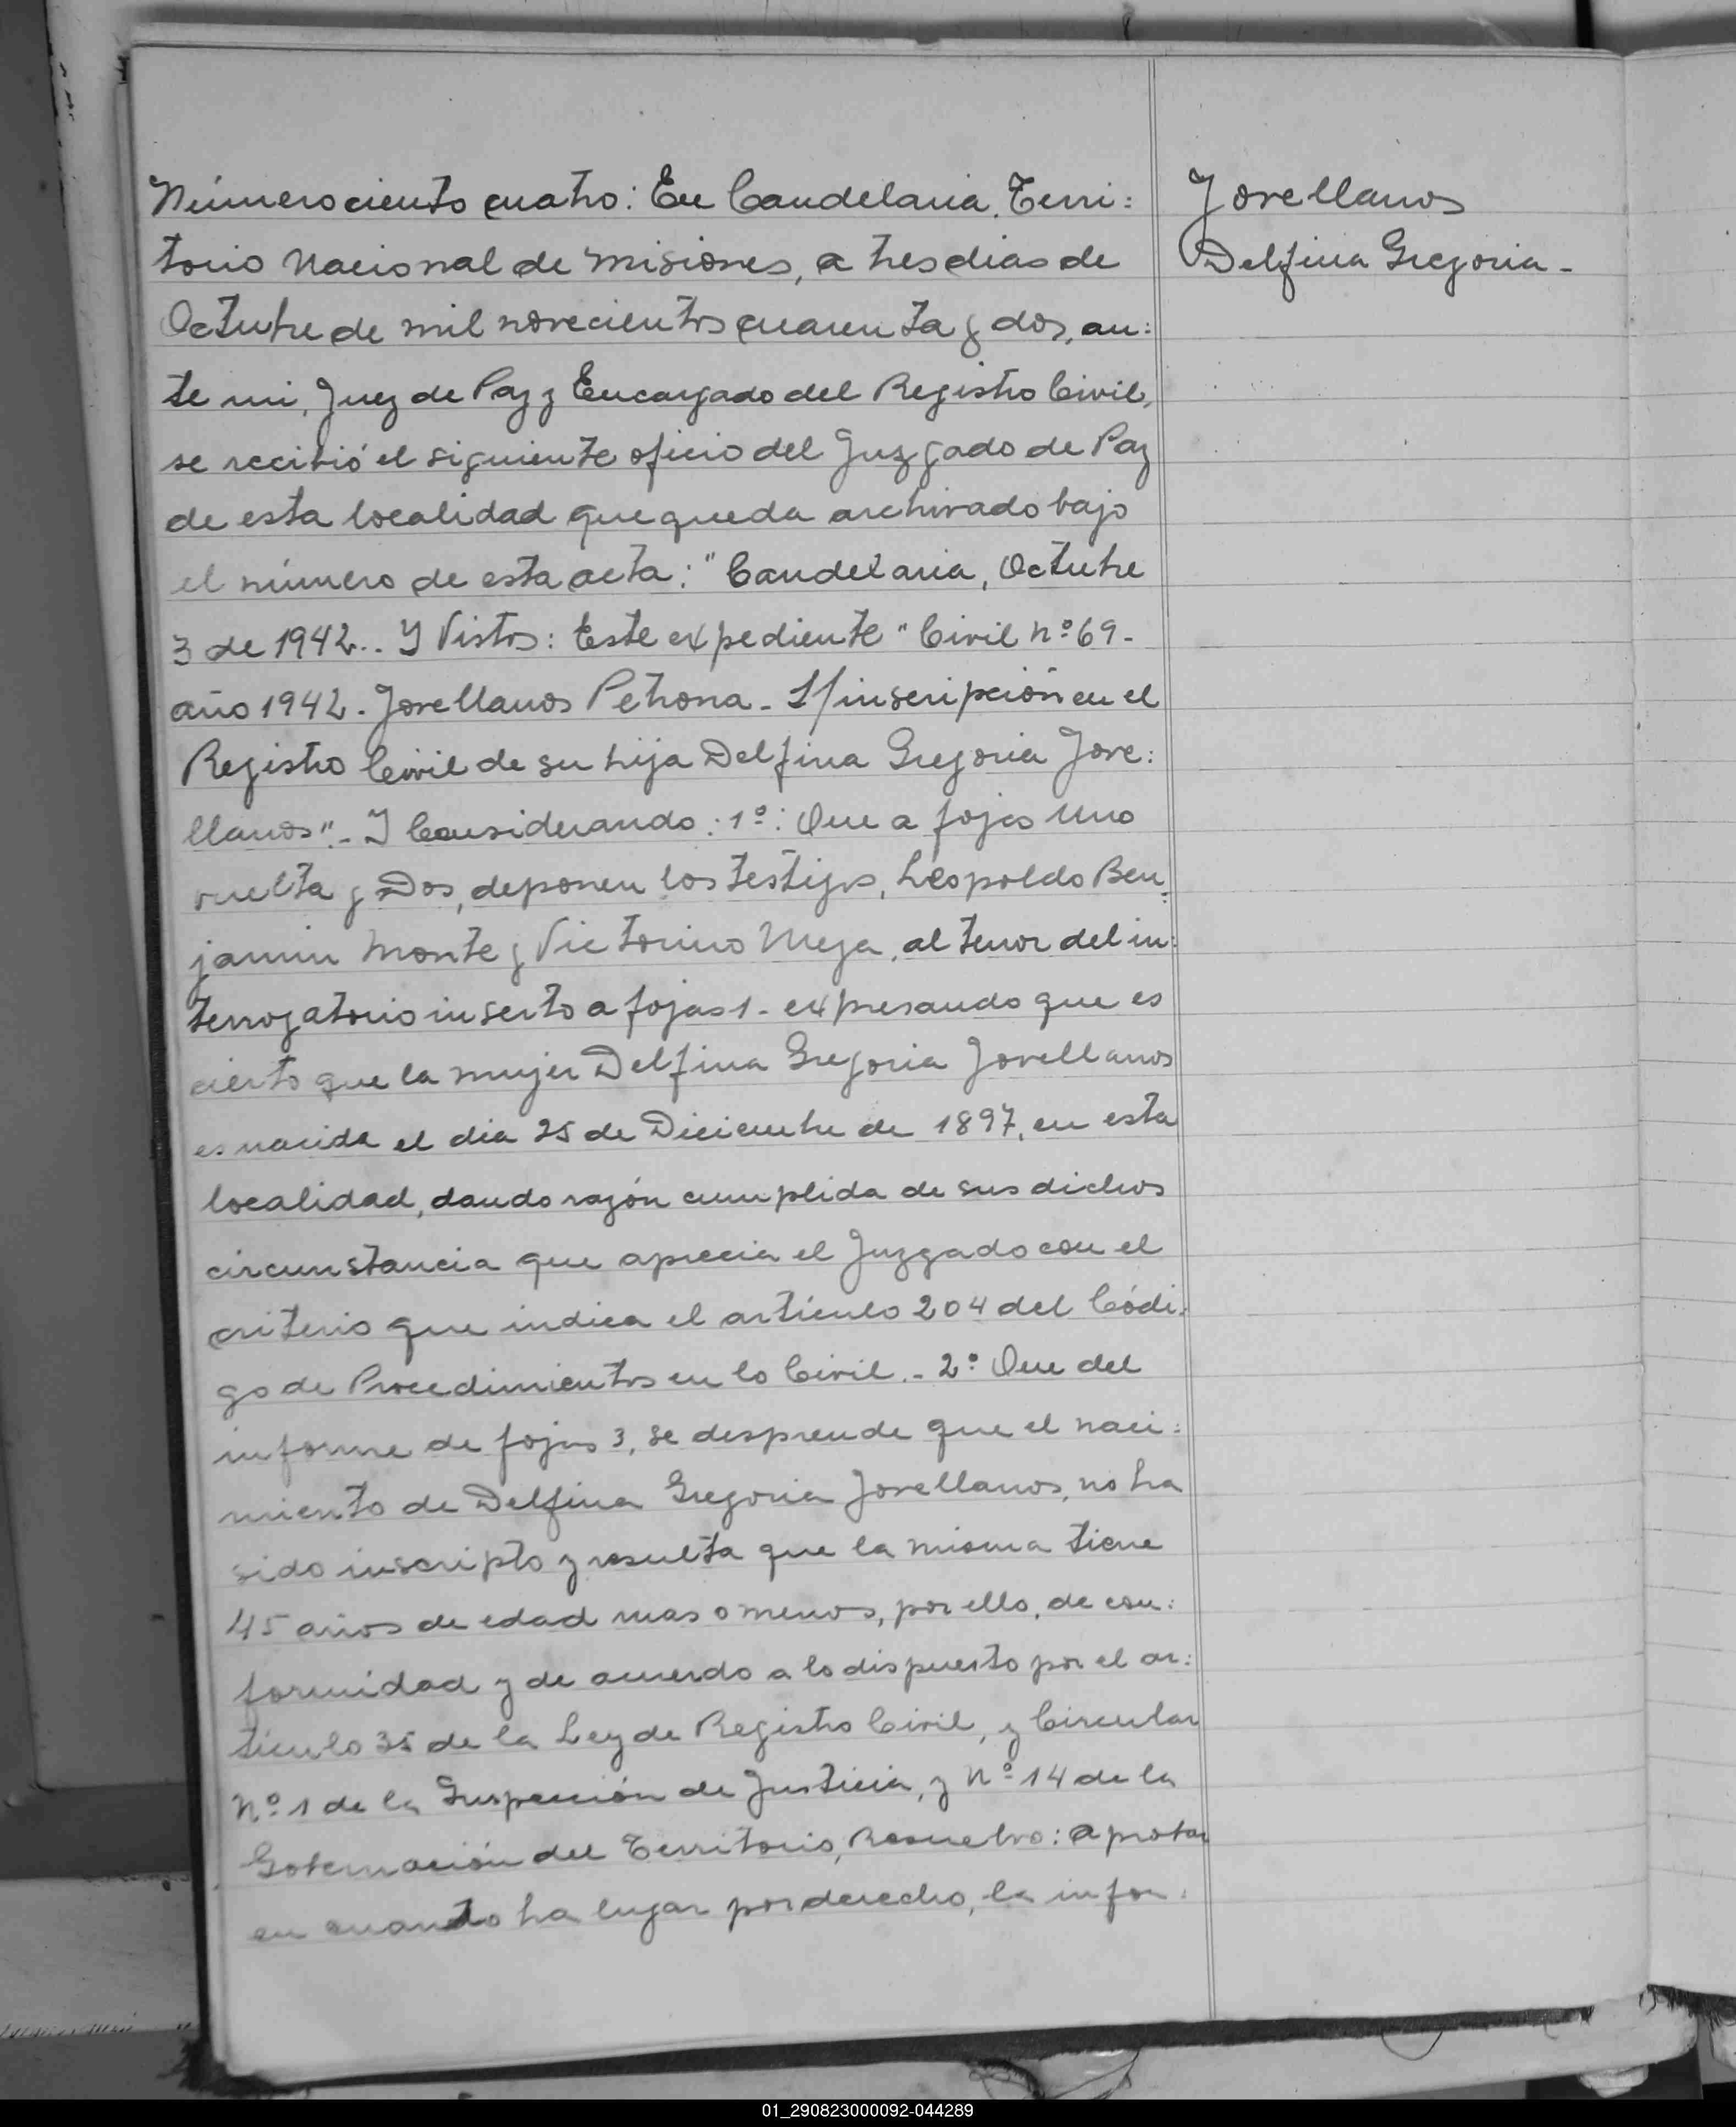 Número ciento cuatro: En Candelaria, Terri:
torio Nacional de Misiones, a tres dias de
Octubre de mil novecientos cuarenta y dos, an:
te mi, Juez de Paz y Encargado del Registro Civil,
se recibió el siguiente oficio del Juzgado de Paz
de esta localidad que queda archivado bajo
el número de esta acta: "Candelaria, Octubre
3 de 1942.- Y Vistos: Este expediente "Civil Nº 69-
año 1942. Jovellanos Petrona - S/inscripción en el
Registro Civil de su hija Delfina Gregoria Jove:
llanos".- Y Considerando: 1º: Que a fojas Uno
vuelta y Dos, deponen los testigos, Leopoldo Ben:
jamin Monte y Victorino Meza, al tenor del in:
terrogatorio inserto a fojas 1- expresando que es
cierto que la mujer Delfina Gregoria Jovellanos
es nacida el dia 25 de Diciembre de 1897, en esta
localidad, dando razón cumplida de sus dichos
circunstancia que aprecia el Juzgado con el
criterio que indica el artículo 204 del Códi:
go de Procedimientos en lo Civil.- 2º Que del
informe de fojas 3, se desprende que el naci:
miento de Delfina Gregoria Jovellanos, no ha
sido inscripto y resulta que la misma tiene
45 años de edad mas o menos, por ello, de con:
formidad y de acuerdo a lo dispuesto por el ar:
tículo 35 de la Ley de Registro Civil, y Circular
Nº 1 de la Inspección de Justicia, y Nº 14 de la
Gobernación del Territorio, Resuelvo: Aprobar
en cuanto ha lugar por derecho, la infor:
Jovellanos
Delfina Gregoria -
01_290823000092-044289